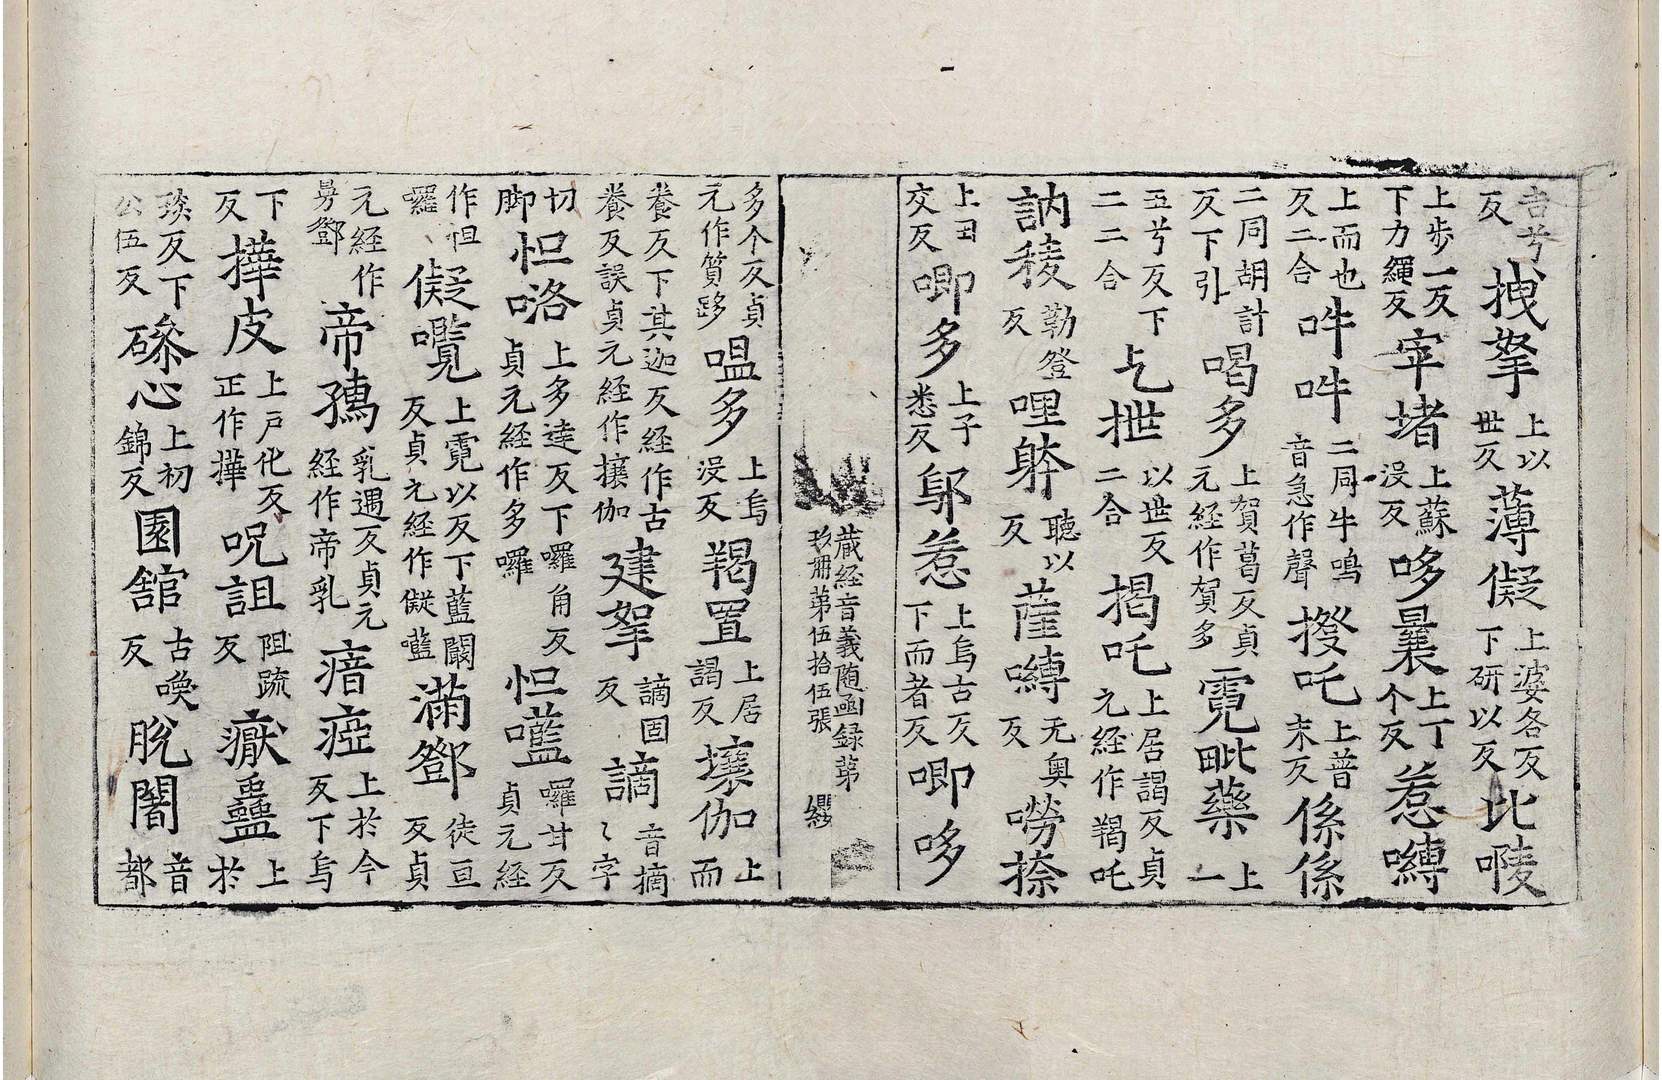 吉兮反拽拏上以世反薄儗上婆各反下研以反比㖫
上步一反下力繩反宰堵上蘇没反哆曩上丁个反惹嚩
上而也反二合吽吽二同牛鳴音急作聲撥吒上普末反係係
二同胡計反下引喝多上賀葛反貞元經作賀多霓毗藥上一
五兮反下二二合乞抴以世反二合揭吒上居謁反貞元経作羯吒
訥稜勒登反哩躃聽以反薩嚩无奥反嘮捺
上田交反唧多上子悉反鄔惹上烏古反下而者反唧哆
藏経音義随函録第玖冊第伍拾伍張 纓
多个反貞元作質哆嗢多上烏没反羯置上居謁反壤伽上而
養反下其迦反経作古養反誤貞元経作攘伽建拏謫固反謫音摘〻字
切脚怛咯上多達反下囉角反貞元経作多囉怛囕囉甘反貞元経
作怛囉儗囕上霓以反下藍闞反貞元経作儗嚂滿鄧徒亘反貞
元経作曼鄧帝孺乳遇反貞元経作帝乳瘖瘂上於今反下烏
下反撶皮上戸化反正作樺呪詛阻䟽反㺉蠱上於
琰反下公伍反磣心上初錦反園舘古喚反脫闍音都